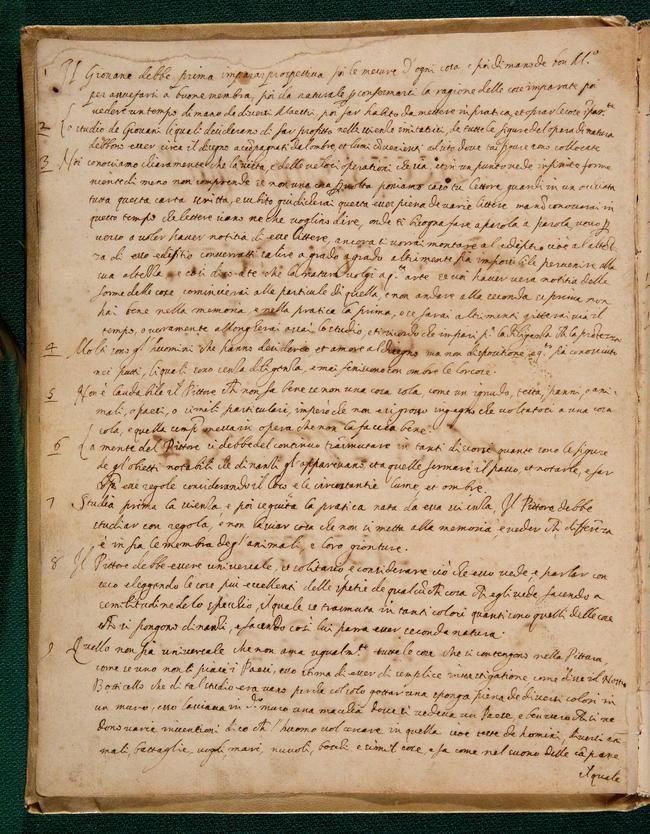 1 Il Giovane debbe prima imparar prospettiva poi le misure d'ogni cosa, e poi di mano de bon M.º
per assuefarsi a buone membra, poi da naturale p confermarsi la ragione delle cose imparate, poi
vedere un tempo di mano de diversi Maestri, poi far habito da mettere in pratica, et oprar le cose
2 Lo studio de giovani li quali desiderano di far profitto nelle scienze imitatrici, de tutte le figure del opera di natura
debbono esser circa il disegno accompagnati de l'ombre, et lumi convenienti al sito dove tal figure sono collocate
3 Noi conosciamo chiaramente che la vista, è delle veloci operationi che sia, et in un punto vede infinite forme
niente di meno non comprende se non una cosa p volta, poniamo caso tu lettore, guardi in un occhiata
tutta questa carta scritta, e subito giudicherai questa esser piena de varie lettere ma non conoscerai in
questo tempo che lettere siano ne che voglino dire, onde ti bisogna fare a parola a parola, verso p
verso a voler haver notitia di esse lettere, ancora se vorrai montare al edifitio
di esso edifitio converratti salire a grado a grado altrimente fia impossibile pervenire alla
sua altezza, e cosi dico a te che la natura volgi a q.ª arte se voi haver vera notitia della
forme delle cose comincierai alla particule di quella, e non andare alla seconda se prima non
hai bene nella memoria, e nella pratica la prima, e se farai altrimenti gitterai via il
tempo, o veramente allongherai assai lo studio, et ricordo che impari p.ª la diligenza che la prestezza
4 Molti sono gl'huomini che hanno desiderio et amore al disegno ma non dispositione, e q.º fia conosciuto
nei putti, li quali sono senza diligenza, e mai finiscono con ombre le lor cose.
5 Non è laudabile il Pittore che non fa bene se non una cosa sola, come un ignudo, testa, panni, o ani-
mali, o paesi, o simili particulari, imperoche non è si grosso ingegno che voltatosi a una cosa
sola, e quella sempre messa in opera che non la faccia bene.
6 La mente del Pittore si debbe del continuo trasmutare in tanti discorsi quante sono le figure
de gl'obietti notabili che dinanzi gl'appariscano, et a quelle fermare il passo, et notarle, e far
sop esse regole considerando il loco e le circostantie lume, et ombre.
7 Studia prima la scienza, e poi seguita la pratica nata da essa scienza. Il Pittore debbe
studiar con regola, e non lasciar cosa che non si metta alla memoria e veder che differenza
è in fra le membra degl'animali, e loro gionture.
8 Il Pittore debbe essere universale, solitario e considerare ciò che esso vede, e parlar con
seco eleggendo le cose piu eccellenti delle spetie de qualunche cosa che egli vede facendo a
similitudine de lo spechio, il quale se trasmuta in tanti colori quanti sono quelli delle cose
che si pongono dinanzi, e facendo cosi lui parra esser seconda natura.
9 Quello non fia universale che non ama ugualm.te tutte le cose che si contengono nella Pittura,
come se uno non li piace i Paesi, esso stima di esser di semplice investigatione, come disse il Nostro
Botticello che di tal studio era vano perche col solo gettar una sponga piena de diversi colori in
un muro, esso lasciava in d.º muro una machia dove si vedeva un Paese, e ben vero che si ve-
dono varie inventioni dico che l'huomo vol cercare in quella, cioe teste de homini, diversi ani-
mali, battaglie, scogli, mari, nuvoli, boschi, e simil cose, e fa come nel suono delle campane
il quale